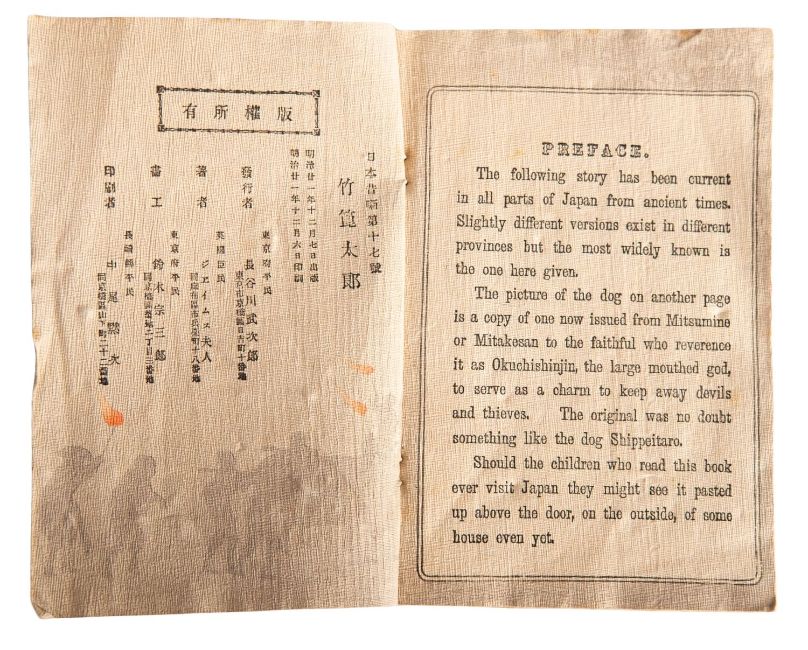 版權所有
日本昔噺第十七號
竹篦太郎
明治廿一年十二月七日出版
明治廿一年十二月六日印刷
東京府平民
發行者 長谷川武次郎
東京市京橋區日吉町十番地
英國臣民
著者 ジエイムス夫人
同麻布區市兵衛町十八番地
東京府平民
畫工 鈴木宗三郎
同京橋區築地二丁目三番地
長崎縣平民
印刷者 中尾默次
同京橋區山下町二十二番地
PREFACE.
The following story has been current
in all parts of Japan from ancient times.
Slightly different versions exist in different
provinces but the most widely known is
the one here given.
The picture of the dog on another page
is a copy of one now issued from Mitsumine
or Mitakesan to the faithful who reverence
it as Okuchishinjin, the large mouthed god,
to serve as a charm to keep away devils
and thieves. The original was no doubt
something like the dog Shippeitaro.
Should the children who read this book
ever visit Japan they might see it pasted
up above the door, on the outside, of some
house even yet.